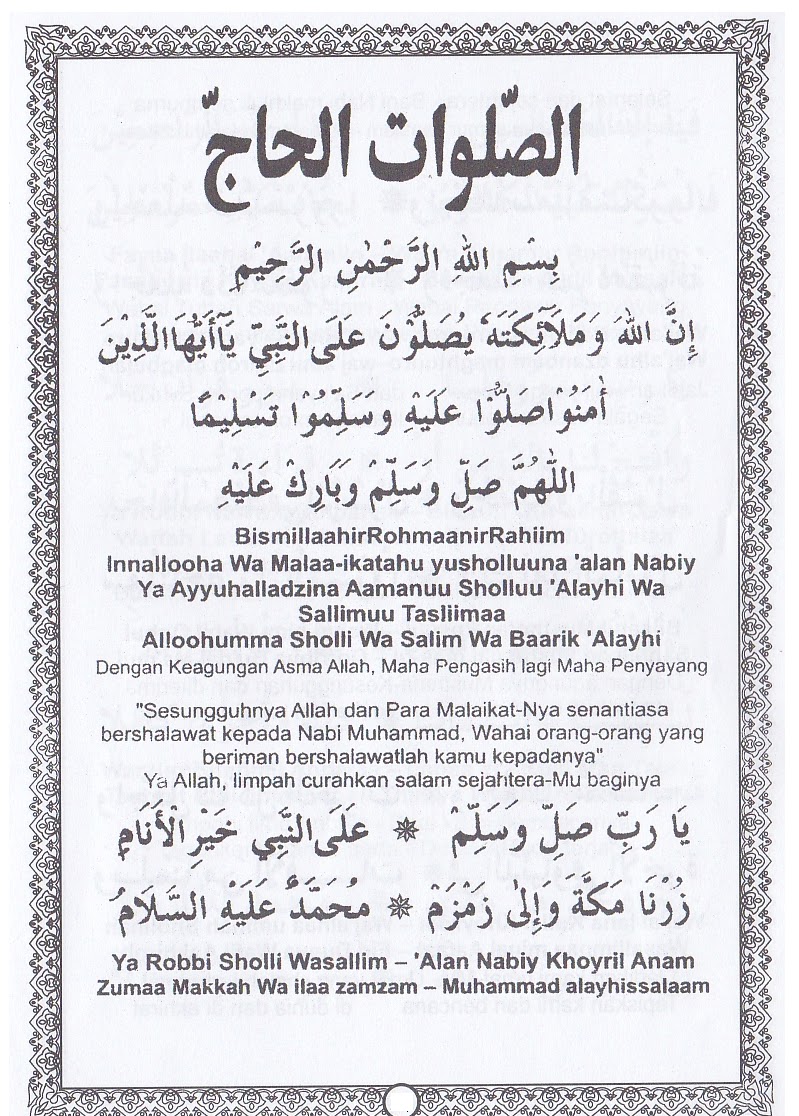 الصّلوات الحاجّ
بِسْمِ اللهِ الرَّحْمٰنِ الرَّحِيْمِ
إِنَّ اللهَ وَمَلَآئِكَتَهُ يُصَلُّوْنَ عَلَى النَّبِيِّ يَآأَيُّهَاالَّذِيْنَ
اٰمَنُوْاصَلُّوْا عَلَيْهِ وَسَلِّمُوْا تَسْلِيْمًا
اَللّٰهُمَّ صَلِّ وَسَلِّمْ وَبَارِكْ عَلَيْهِ
BismillaahirRohmaanirRahiim
Innallooha Wa Malaa-ikatahu yusholluuna 'alan Nabiy
Ya Ayyuhalladzina Aamanuu Sholluu 'Alayhi Wa
Sallimuu Tasliimaa
Alloohumma Sholli Wa Salim Wa Baarik 'Alayhi
Dengan Keagungan Asma Allah, Maha Pengasih lagi Maha Penyayang
"Sesungguhnya Allah dan Para Malaikat-Nya senantiasa
bershalawat kepada Nabi Muhammad, Wahai orang-orang yang
beriman bershalawatlah kamu kepadanya"
Ya Allah, limpah curahkan salam sejahtera-Mu baginya
يَا رَبِّ صَلِّ وَسَلِّمْ ❋ عَلَى النَّبِيِ خَيْرِ الْأَنَامِ
زُرْنَا مَكَّةَ وَإِلٰى زَمْزَمْ ❋ مُحَمَّدْ عَلَيْهِ السَّلَامُ
Ya Robbi Sholli Wasallim – 'Alan Nabiy Khoyril Anam
Zurnaa Makkah Wa ilaa zamzam – Muhammad alayhissalaam